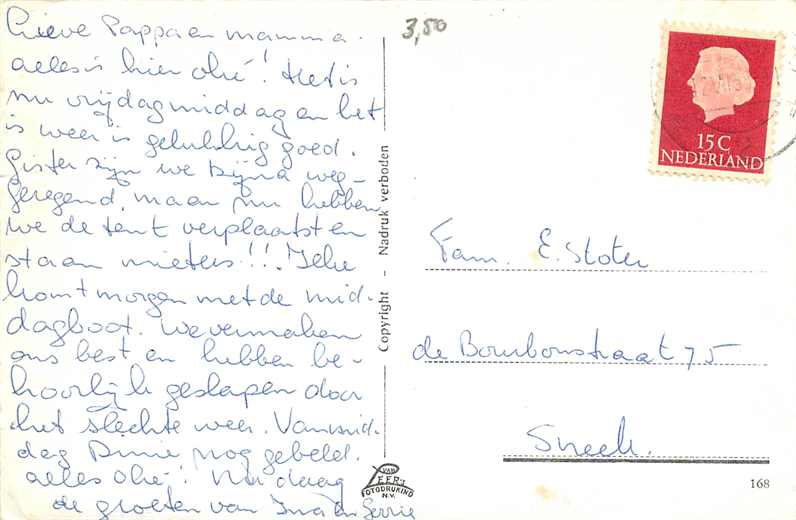 Lieve Pappa en mamma.
alles is hier oké! Het is
nu vrijdagmiddag en het
is weer is gelukkig goed.
Gister zijn we bijna weg-
geregend, maar nu hebben
we de tent verplaatst en
staan mieters!!! Jelle
komt morgen met de mid-
dagboot. We vermaken
ons best en hebben be-
hoorlijk geslapen door
het slechte weer. Vanmid-
dag Dinie nog gebeld.
alles oké! Nu daag
de groeten van Ina en Gerrie
3,50
Copyright - Nadruk verboden
VAN LEER'S
FOTODRUKIND
N.V.
15 C
NEDERLAND
Fam. E. Stoter
de Bourbonstraat 75
Sneek.
168